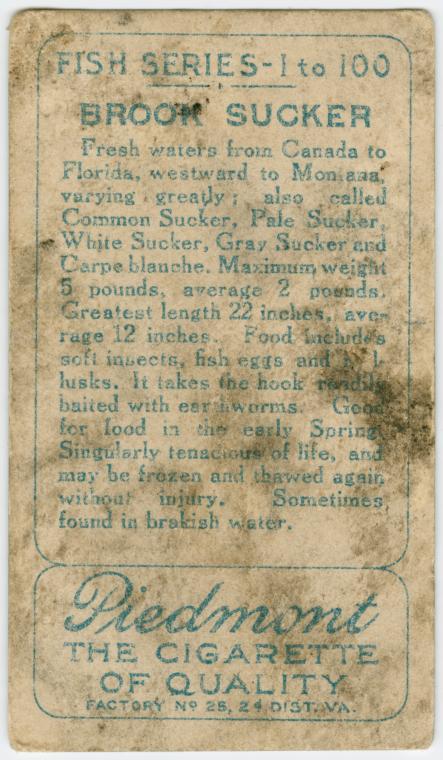 FISH SERIES-1 to 100
BROOK SUCKER
Fresh waters from Canada to
Florida, westward to Montana,
varying greatly; also called
Common Sucker, Pale Sucker,
White Sucker, Gray Sucker and
Carpe blanche. Maximum weight
5 pounds, average 2 pounds.
Greatest length 22 inches, ave-
rage 12 inches. Food includes
soft insects, fish eggs and mol-
lusks. It takes the hook readily
baited with earthworms. Good
for food in the early Spring.
Singularly tenacious of life, and
may be frozen and thawed again
without injury. Sometimes
found in brakish water.
Piedmont
THE CIGARETTE
OF QUALITY
FACTORY Nº 25, 2d DIST. VA.